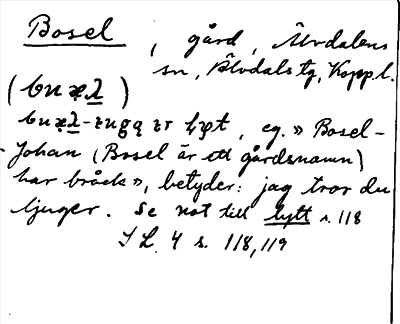 Bosel, gård, Älvdalens
sn, Älvdals tg, Kopp.l.
(buxλ)
eg. » Bosel-
Johan (Bosel är ett gårdsnamn)
har bråck», betyder: jag tror du
ljuger. Se not till lytt s. 118
SL. 4 s. 118, 119